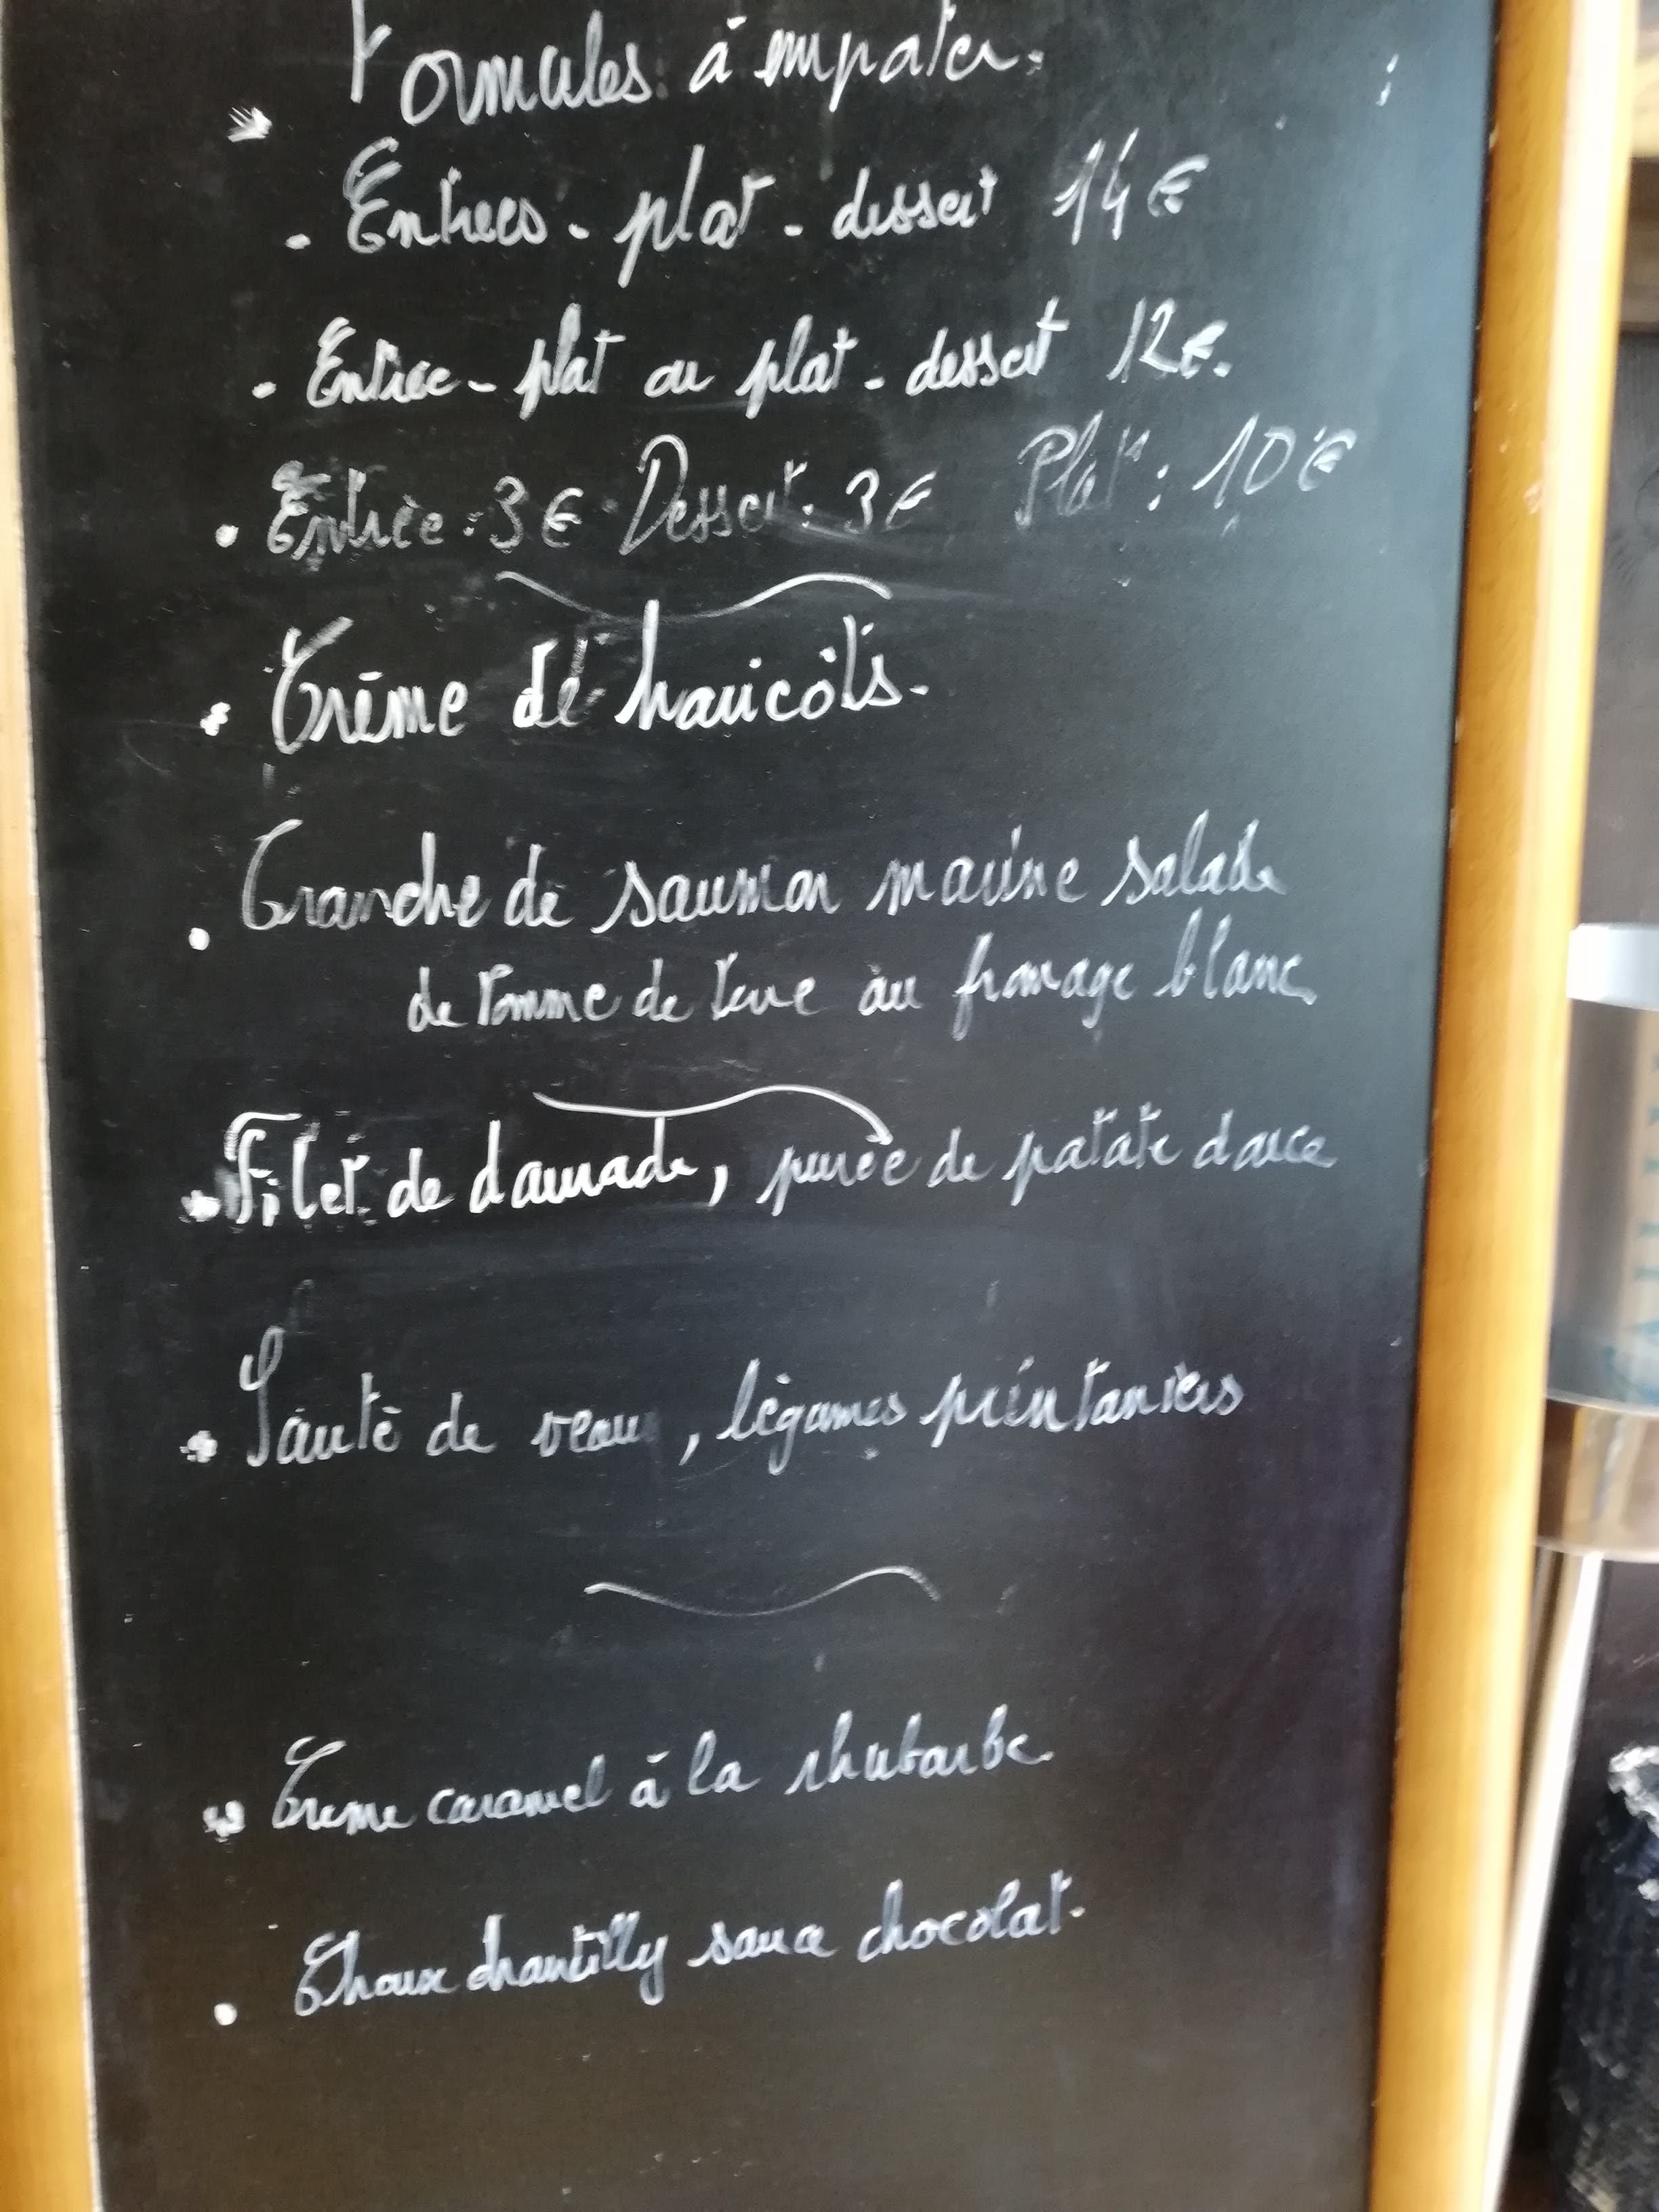 Formules à emporter.
- Entrées - plat - dessert 14€
- Entrée - plat ou plat - dessert 12€.
• Entrée : 3€ Dessert : 3€ Plat : 10€
• Crème de haricots.
• Tranche de saumon marine salade
de Pomme de terre au fromage blanc
• Filet de daurade, purée de patate douce
• Sauté de veau, légumes printaniers
• Creme caramel à la rhubarbe
• Choux chantilly sauce chocolat.